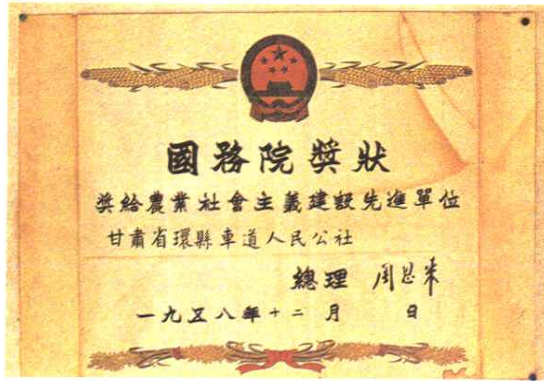 國務院獎狀
獎給農業社會主義建設先進單位
甘肅省環縣車道人民公社
總理 周恩来
一九五八年十二月 日